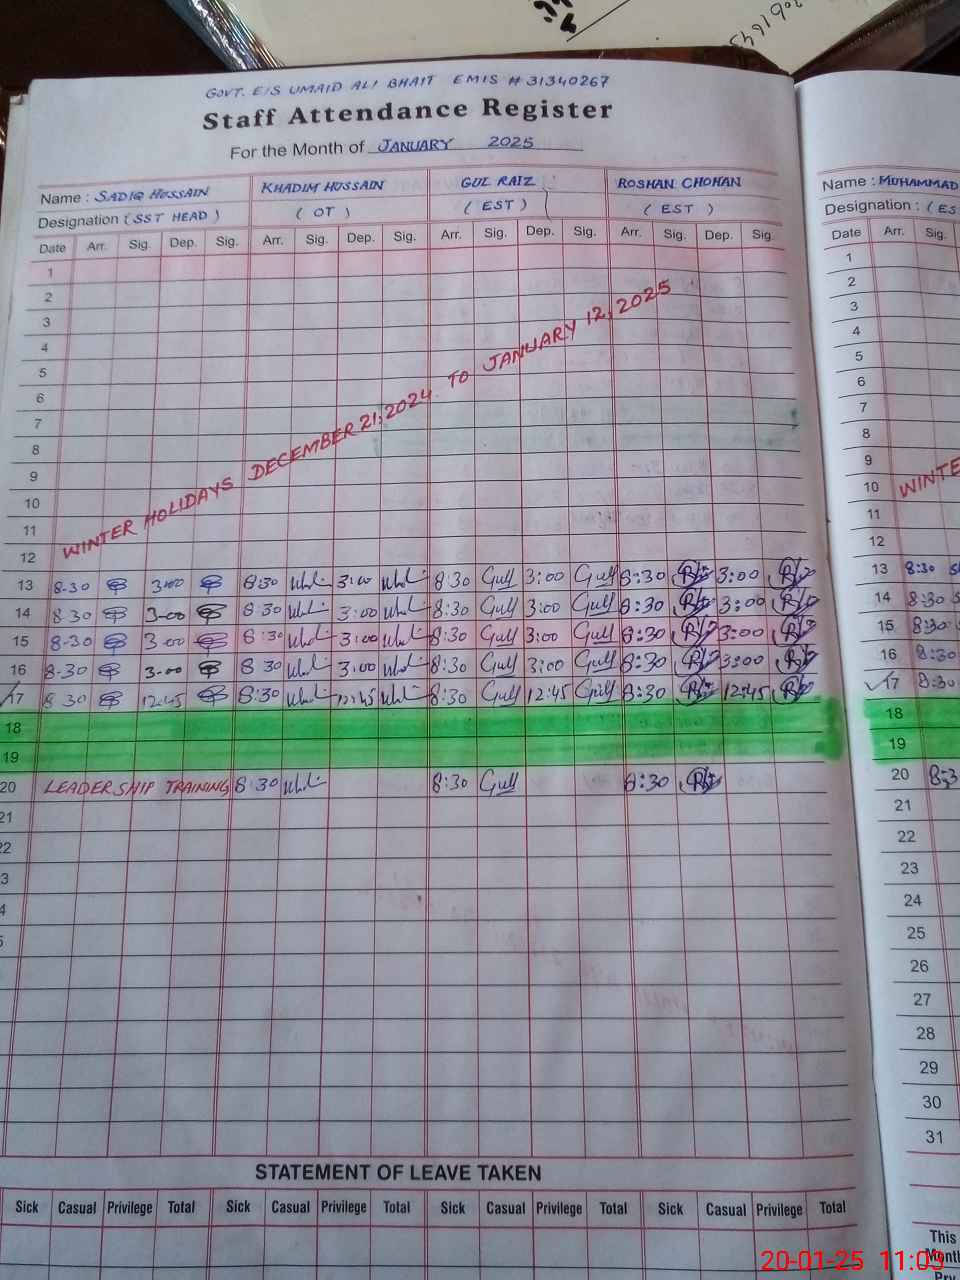 20616643
GOVT. E/S UMAID ALI BHAIT EMIS # 31340267
Staff Attendance Register
For the Month of JANUARY 2025
Name : SADIQ HUSSAIN KHADIM HUSSAIN GUL RAIZ ROSHAN CHOHAN
Designation (SST HEAD) (OT) (EST) (EST)
Date Arr. Sig. Dep. Sig. Arr. Sig. Dep. Sig. Arr. Sig. Dep. Sig. Arr. Sig. Dep. Sig.
1
2
3
4
5
6
7
8
9
10
11
12
WINTER HOLIDAYS DECEMBER 21, 2024 TO JANUARY 12, 2025
13 8-30 3-00 8:30 3:00 8:30 Gull 3:00 Gull 8:30 3:00
14 8-30 3-00 8:30 3:00 8:30 Gull 3:00 Gull 8:30 3:00
15 8-30 3-00 8:30 3:00 8:30 Gull 3:00 Gull 8:30 3:00
16 8-30 3-00 8:30 3:00 8:30 Gull 3:00 Gull 8:30 3:00
17 8 30 12:45 8:30 12:45 8:30 Gull 12:45 Gull 8:30 12:45
18
19
20 LEADERSHIP TRAINING 8:30 8:30 Gull 8:30
21
22
3
4
5
STATEMENT OF LEAVE TAKEN
Sick Casual Privilege Total Sick Casual Privilege Total Sick Casual Privilege Total Sick Casual Privilege Total
Name : MUHAMMAD
Designation : (ES
Date Arr. Sig.
1
2
3
4
5
6
7
8
9
10 WINTE
11
12
13 8:30
14 8:30
15 8:30
16 8:30
17 8:30
18
19
20 8:3
21
22
23
24
25
26
27
28
29
30
31
This
Month
Pry
20-01-25 11:03